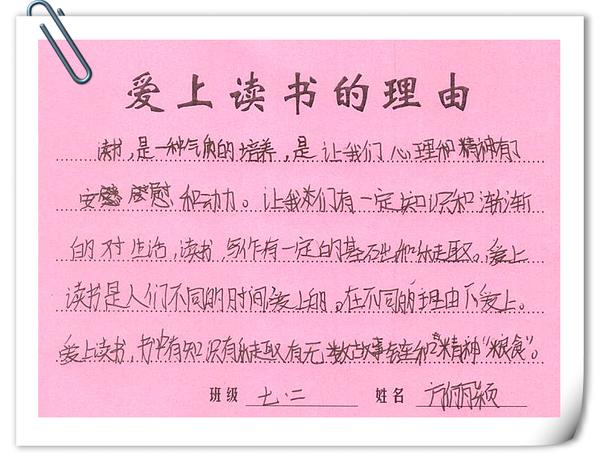 爱上读书的理由
读书,是一种气质的培养,是让我们心理和精神有了
安慰和动力。让我们有一定知识和渐渐
的对生活,读书写作有一定的基础和乐趣。爱上
读书是人们不同的时间爱上的。在不同的理由下爱上。
爱上读书,书中有知识有乐趣有无数故事和精神“粮食”。
班级 七.二 姓名 方丽颖